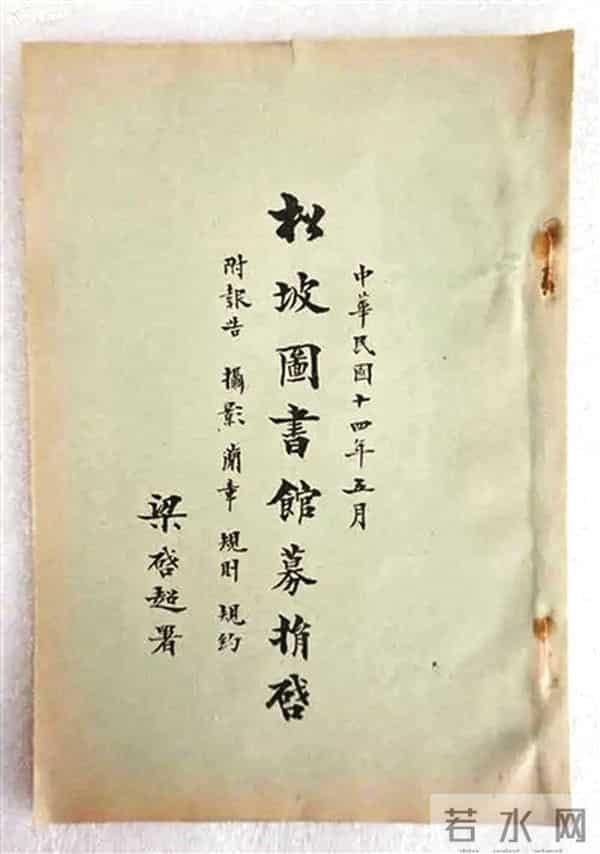 中華民國十四年五月
松坡圖書館募捐啓
附報告 攝影 簡章 規則 規約
梁啓超署
若水网